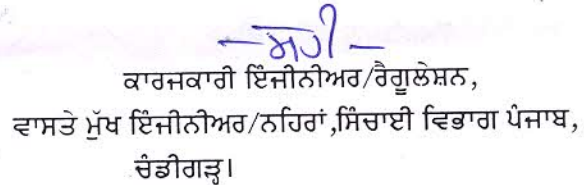 -ਸਹੀ-
ਕਾਰਜਕਾਰੀ ਇੰਜੀਨੀਅਰ/ਰੈਗੂਲੇਸ਼ਨ,
ਵਾਸਤੇ ਮੁੱਖ ਇੰਜੀਨੀਅਰ/ਨਹਿਰਾਂ,ਸਿੰਚਾਈ ਵਿਭਾਗ ਪੰਜਾਬ,
ਚੰਡੀਗੜ੍ਹ।